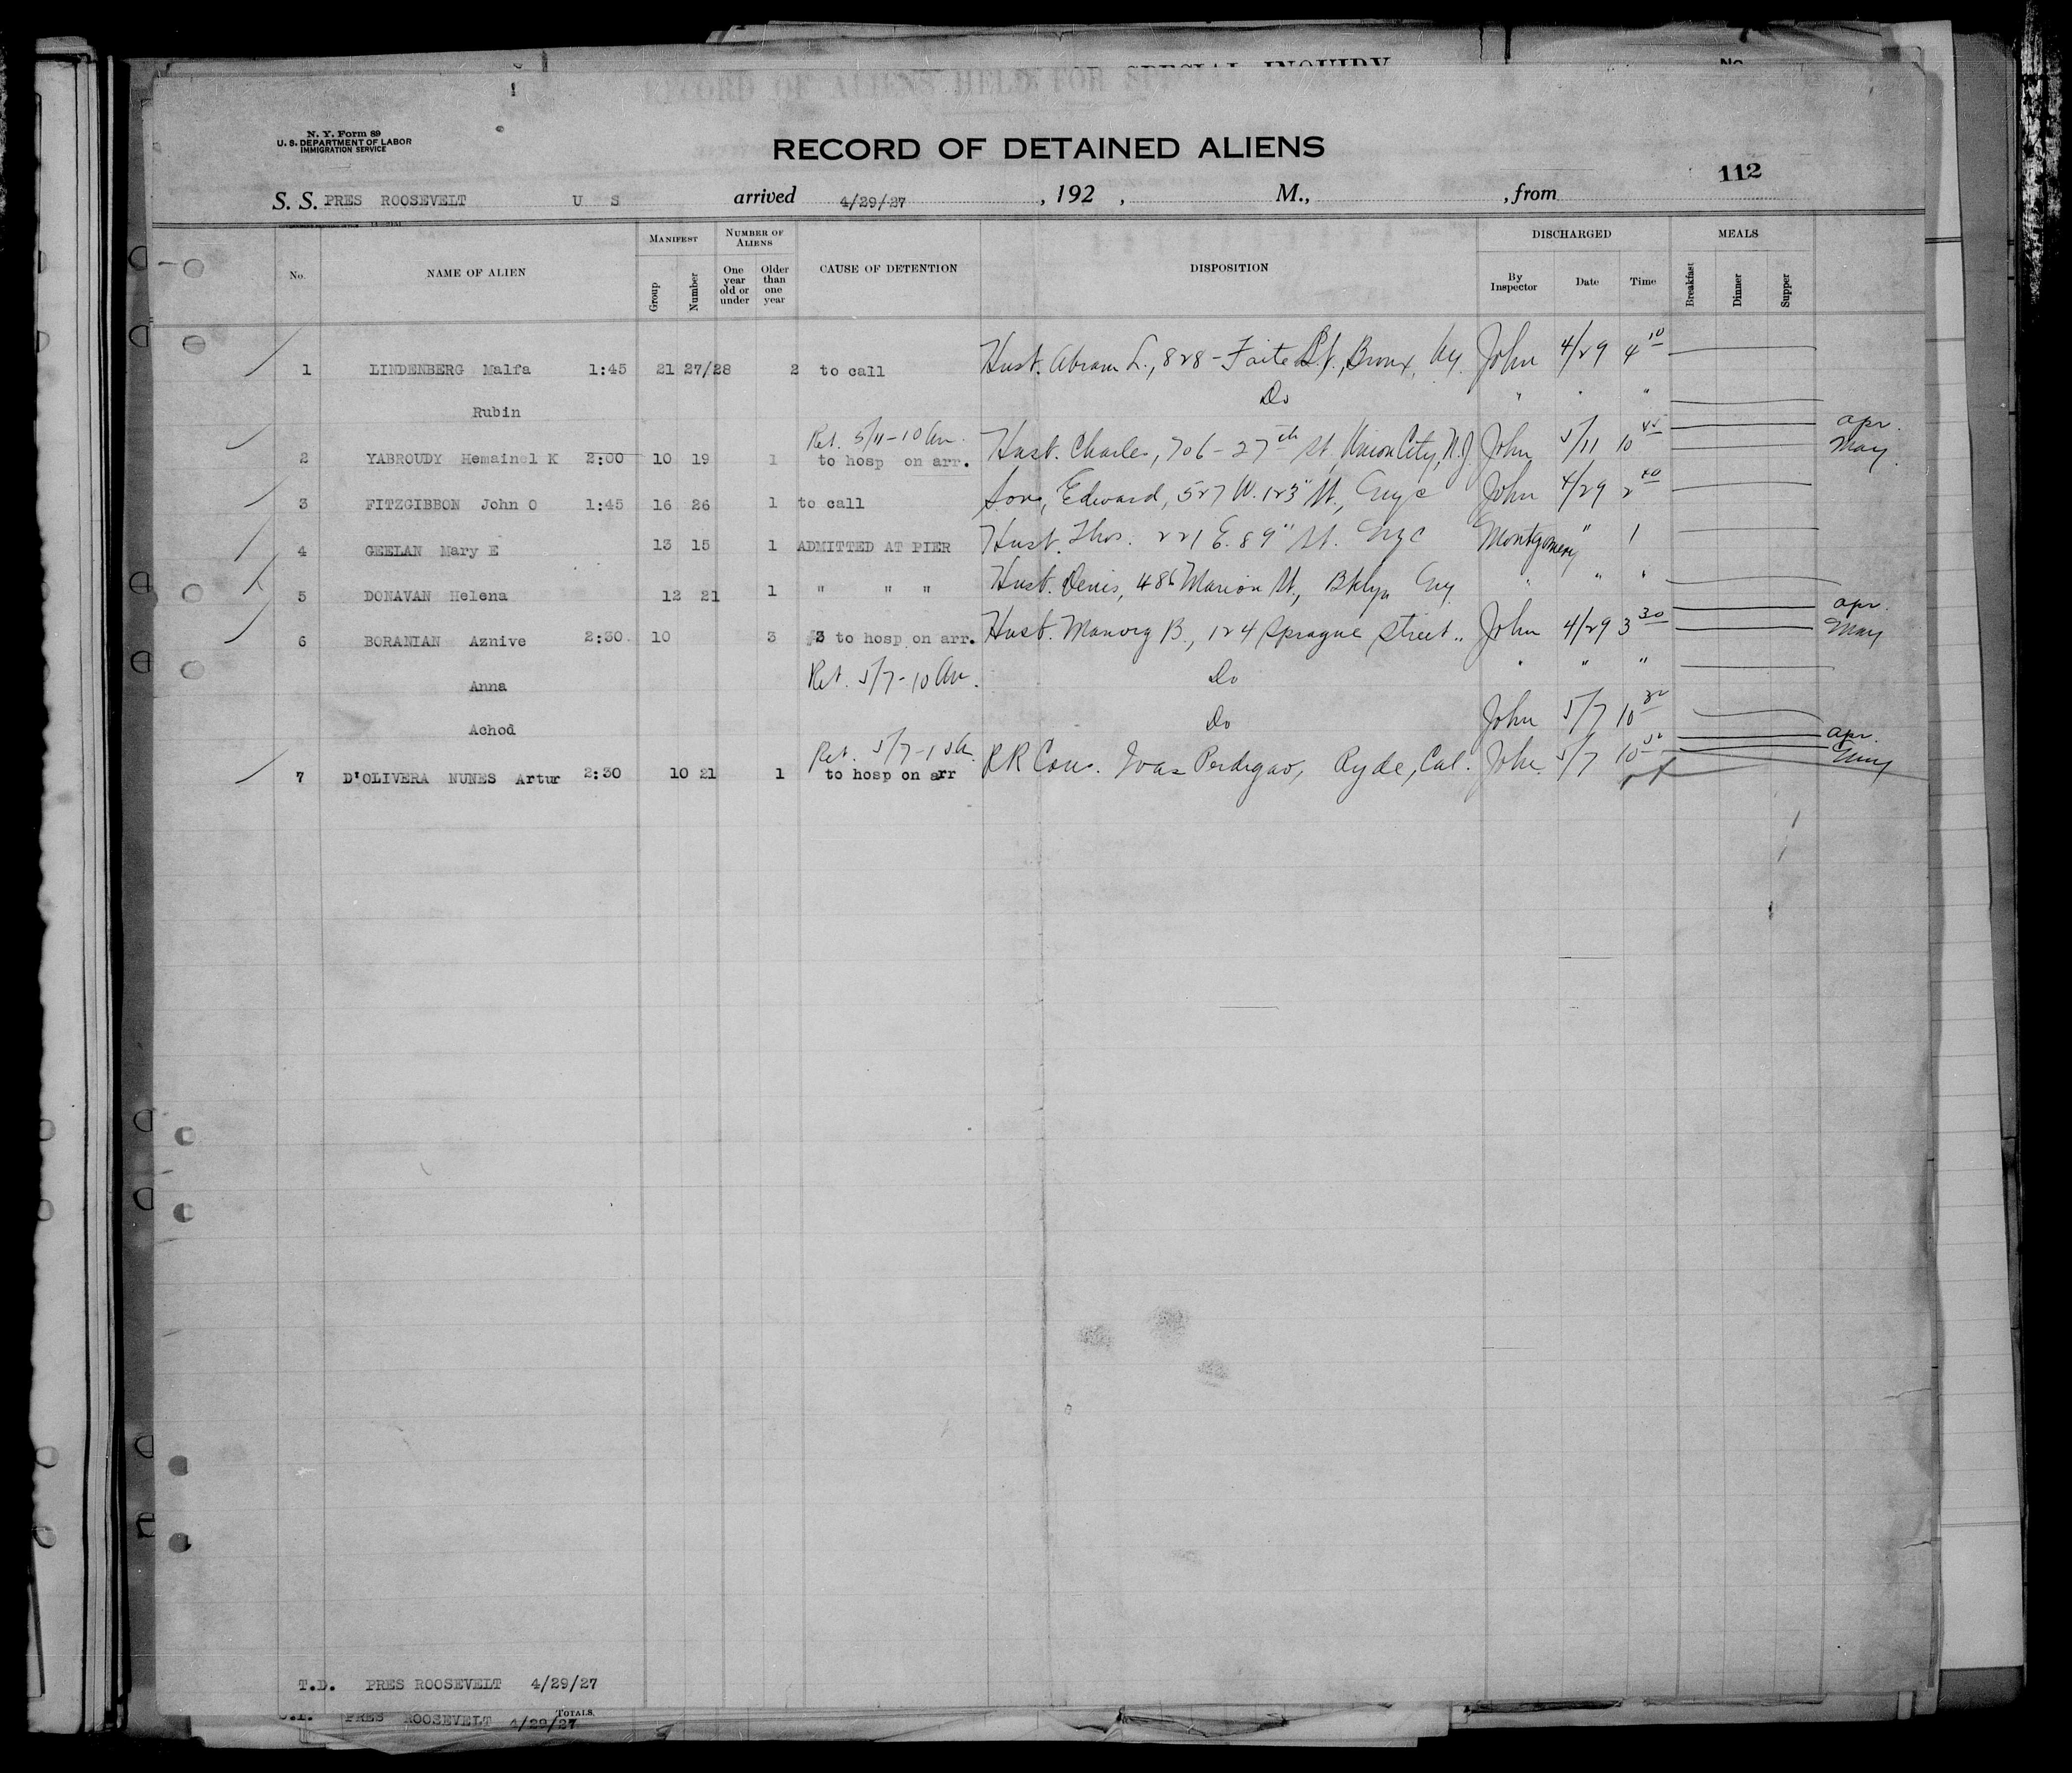 RECORD OF ALIENS HELD FOR SPECIAL INQUIRY
No.
N. Y. Form 89
U. S. DEPARTMENT OF LABOR
IMMIGRATION SERVICE
RECORD OF DETAINED ALIENS
112
S. S. PRES ROOSEVELT U S arrived 4/29/27, 192 , M., , from
No. NAME OF ALIEN MANIFEST Group Number NUMBER OF ALIENS One year old or under Older than one year CAUSE OF DETENTION DISPOSITION DISCHARGED By Inspector Date Time MEALS Breakfast Dinner Supper
1 LINDENBERG Malfa 1:45 21 27/28 2 to call Husb. Abram L., 828 - Faite St., Bronx, Ny. John 4/29 4 10
Rubin Do " " "
Ret. 5/11-10 Am. apr.
2 YABROUDY Hemainel K 2:00 10 19 1 to hosp on arr. Husb. Charles, 706 - 27th St. Union City, N.J. John 5/11 10 45 May
3 FITZGIBBON John O 1:45 16 26 1 to call Son, Edward, 527 W. 123" St., Nyc John 4/29 2 40
4 GEELAN Mary E 13 15 1 ADMITTED AT PIER Husb. Thos. 221 E. 89" St. Nyc Montgomery " 1
5 DONAVAN Helena 12 21 1 " " " Husb. Denis, 486 Marion St., Bklyn Ny " " "
apr.
6 BORANIAN Aznive 2:30 10 3 3 to hosp on arr. Husb. Manoog B., 124 Sprague Street.. John 4/29 3 30 May
Anna Ret. 5/7-10 Am. Do " " "
Achod Do John 5/7 10 30
Ret. 5/7-10 apr.
7 D'OLIVERA NUNES Artur 2:30 10 21 1 to hosp on arr RR Con. Joas Perdigao, Ryde, Cal. John 5/7 10 May
T.D. PRES ROOSEVELT 4/29/27
TOTALS
PRES ROOSEVELT 4/29/27